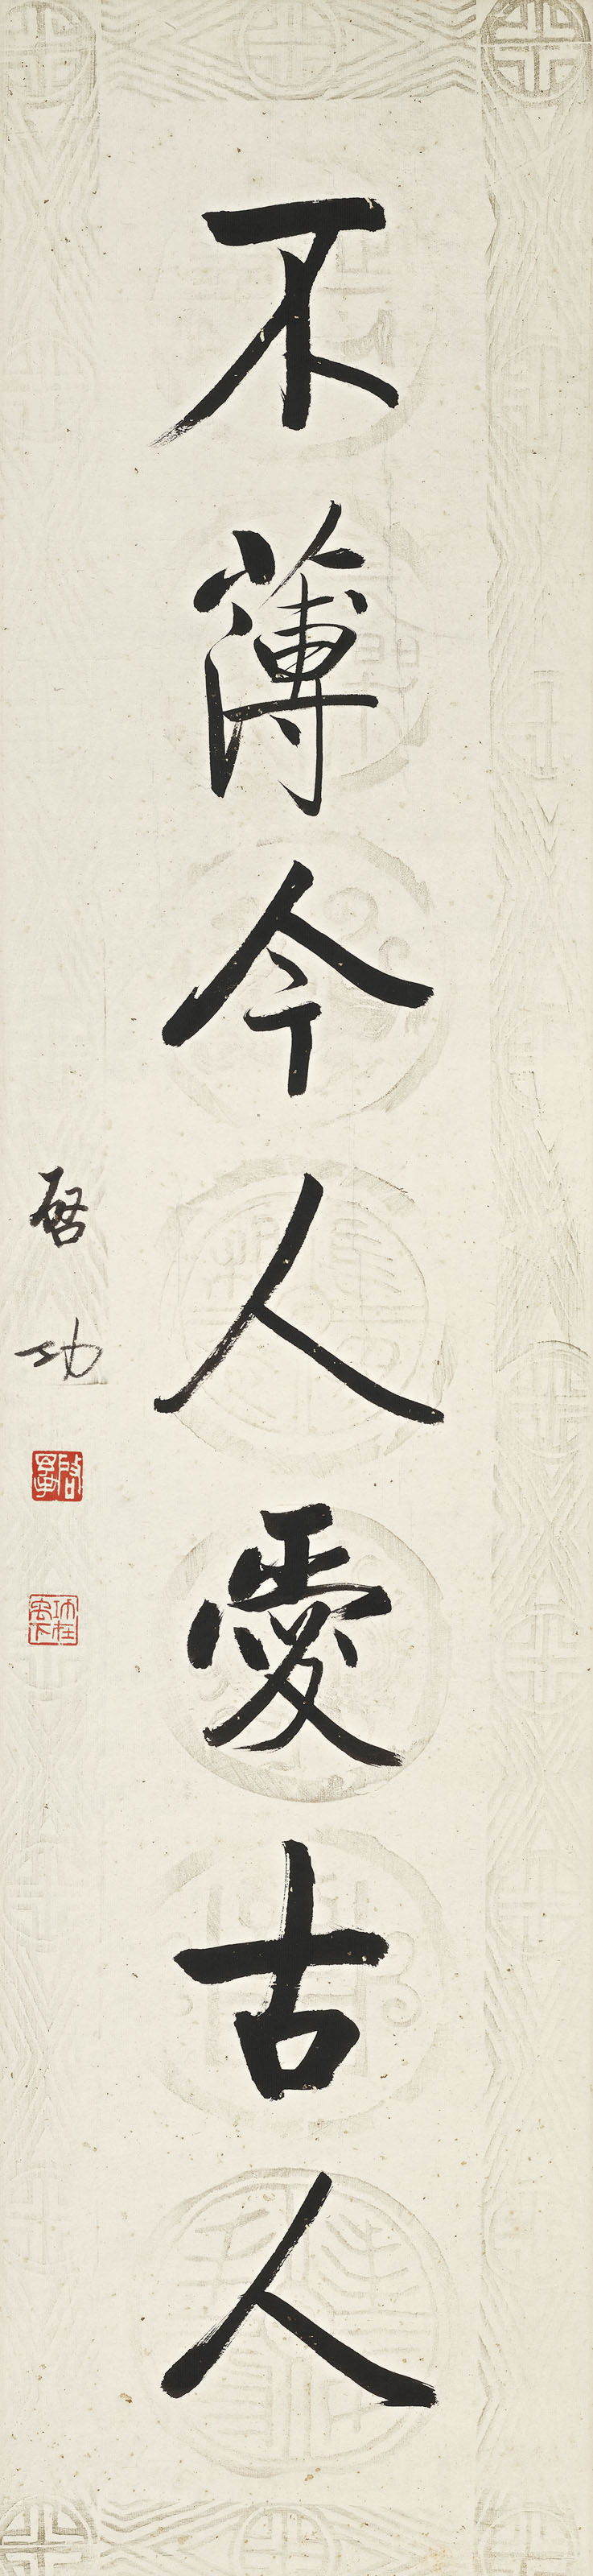 不薄今人愛古人
啓功